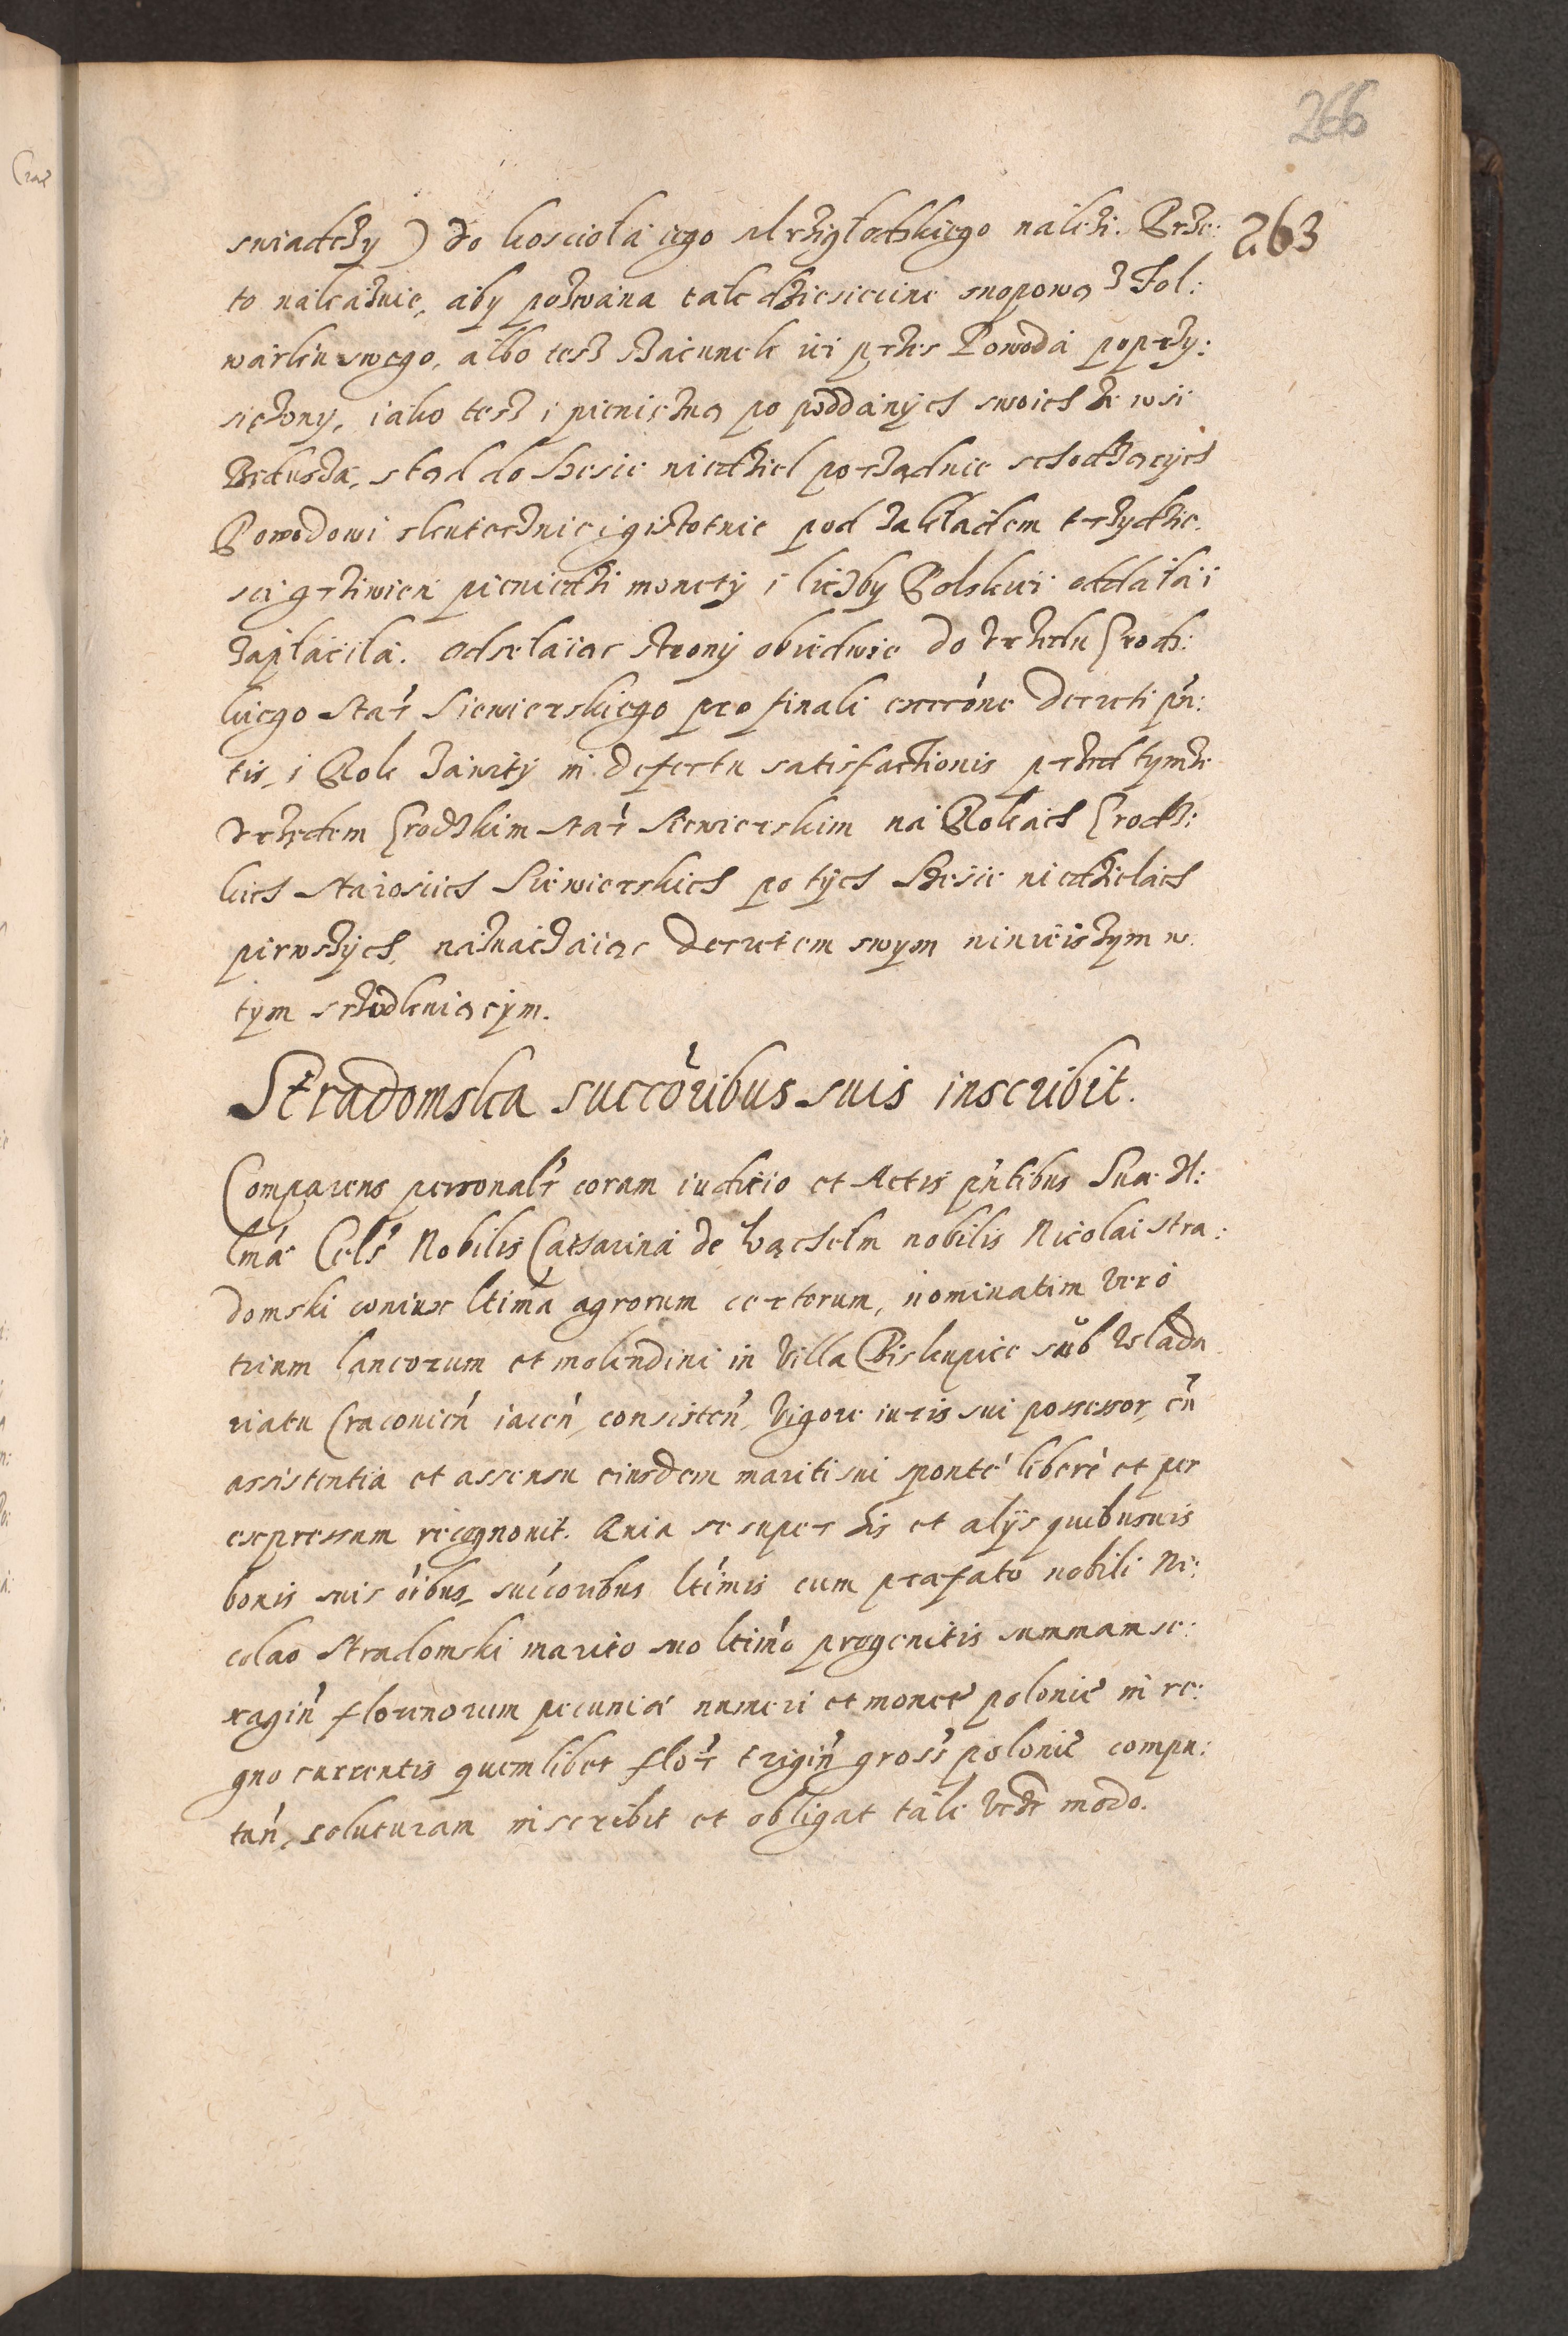 266
263
swiadczy) do kosciola iego Mrzigłodzkiego należi. Prze:
to nakazuie, aby pozwana take dziesiecine snopową z Fol:
warku swego, albo tesz szacunek iei przes Powoda poprzy:
siężony, iako tesz i pieniężną po poddanych swoich ze wsi
Beduszá, stąd do szesci niedziel porządnie schodzących
Powodowi skutecznie i gistotnie pod zakładem trzydzie
sci grziwien pieniedzi monety i liczby Polskiei oddała i
zapłacila. Odsełaiąc strony obiedwie do Urzedu Grodz:
kiego Star Siewierskiego pro finali exccone decreti pn:
tis, i Rok zawity in defectu satisfactionis przed tymze
Urzędem Grodzkim Star Siewierskim na Rokach Grodz:
kich Starosciich Siewierskich po tych szesci niedzielach
pirwszych, naznaczaiąc decretem swym ninieiszym w
tym srzodkuiącym.
Stradomska succoribus suis inscribit.
Comparens personalr coram iuditio et Actis pntibus Sua Il:
lmae Cels Nobilis Catharina de Łąchelm nobilis Nicolai Stra:
domski coniux ltima agrorum certorum, nominatim vero
trium laneorum et molendini in Villa Biskupice sub Wlada
riatu Cracovien iacen, consisten, vigore iuris sui possessor, cu
assistentia et assensu eiusdem mariti sui sponte libere et per
expressum recognovit. Quia se super his et alijs quibusvis
bonis suis oibus, succoribus ltimis cum praefato nobili Ni:
colao Stradomski marito suo ltimo progenitis summam se:
xagin florenorum pecuniae numeri et monete polonie in re:
gno currentis quemlibet flor trigin gross polonie compu:
tan, soluturam inscribit et obligat tali vide modo.